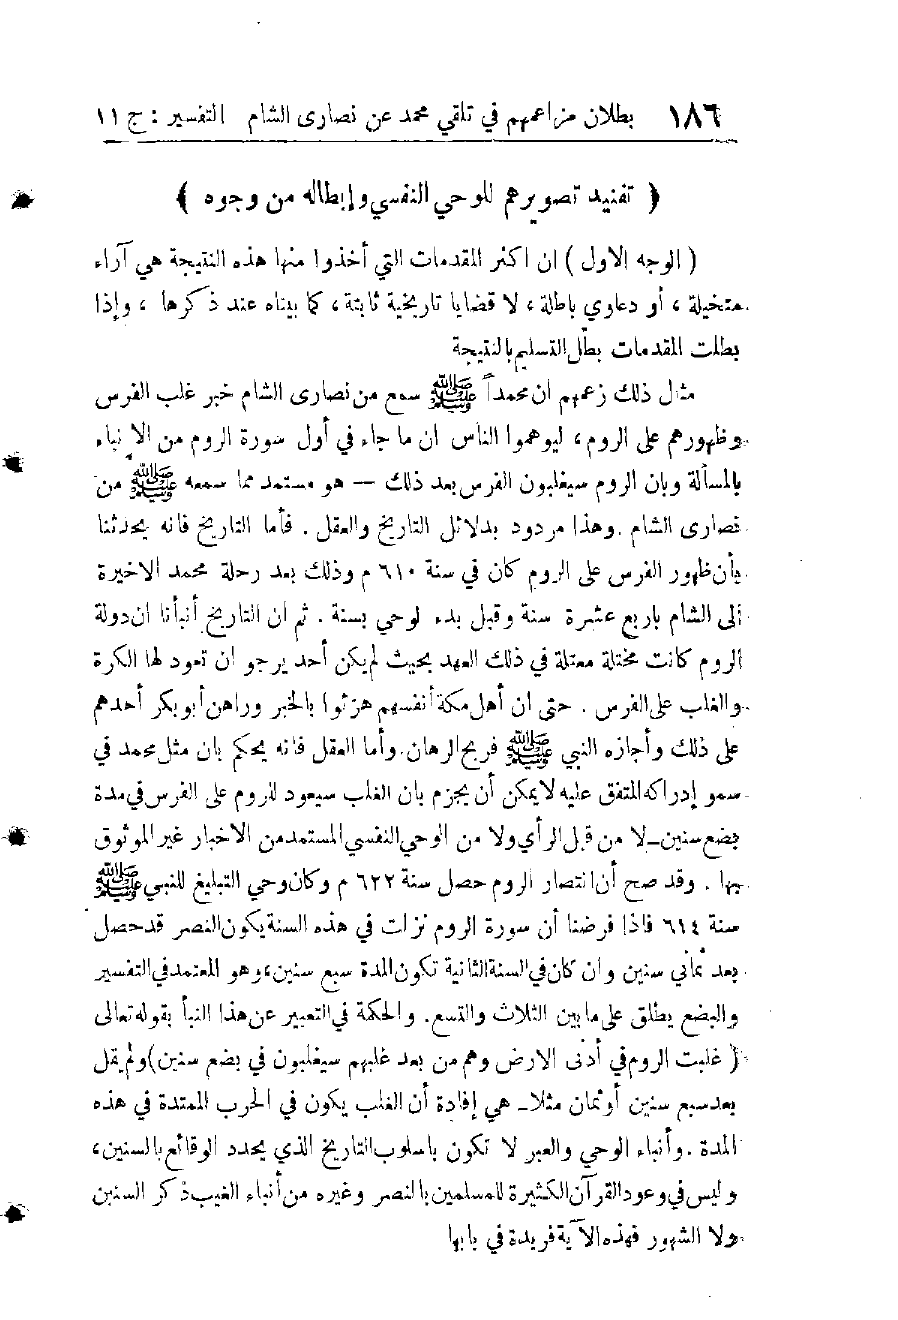 ١٨٦ بطلان مزاعمهم في تلقي محمد عن نصارى الشام التفسير : ج ١١
﴿ تفنيد تصويرهم للوحي النفسي وإبطاله من وجوه ﴾
( الوجه الاول ) ان اكثر المقدمات التي أخذوا منها هذه النتيجة هي آراء
متخيلة ، أو دعاوي باطلة ، لا قضايا تاريخية ثابتة ، كما بيناه عند ذكرها ، وإذا
بطلت المقدمات بطل التسليم بالنتيجة
مثال ذلك زعمهم ان محمداً ﷺ سمع من نصارى الشام خبر غلب الفرس
وظهورهم على الروم ، ليوهموا الناس ان ما جاء في أول سورة الروم من الانباء
بالمسألة وبان الروم سيغلبون الفرس بعد ذلك — هو مستمد مما سمعه ﷺ من
نصارى الشام . وهذا مردود بدلائل التاريخ والعقل . فأما التاريخ فانه يحدثنا
بأن ظهور الفرس على الروم كان في سنة ٦١٠ م وذلك بعد رحلة محمد الاخيرة
الى الشام باربع عشرة سنة وقبل بدء لوحي بسنة . ثم ان التاريخ أنبأنا ان دولة
الروم كانت مختلة معتلة في ذلك العهد بحيث لم يكن أحد يرجو ان تعود لها الكرة
والغلب على الفرس . حتى ان أهل مكة أنفسهم هزئوا بالخبر وراهن أبو بكر أحدهم
على ذلك وأجازه النبي ﷺ فربح الرهان . وأما العقل فانه يحكم بان مثل محمد في
سمو إدراكه المتفق عليه لا يمكن أن يجزم بان الغلب سيعود للروم على الفرس في مدة
بضع سنين ــ لا من قبل الرأي ولا من الوحي النفسي المستمد من الاخبار غير الموثوق
بها . وقد صح أن انتصار الروم حصل سنة ٦٢٢ م وكان وحي التبليغ للنبي ﷺ
سنة ٦١٤ فاذا فرضنا أن سورة الروم نزلت في هذه السنة يكون النصر قد حصل
بعد ثماني سنين وان كان في السنة الثانية تكون المدة سبع سنين ، وهو المعتمد في التفسير
والبضع يطلق على ما بين الثلاث والتسع . والحكمة في التعبير عن هذا النبأ بقوله تعالى
( غلبت الروم في أدنى الارض وهم من بعد غلبهم سيغلبون في بضع سنين ) ولم يقل
بعد سبع سنين أو ثمان مثلا ــ هي إفادة أن الغلب يكون في الحرب الممتدة في هذه
المدة . وأنباء الوحي والعبر لا تكون باسلوب التاريخ الذي يحدد الوقائع بالسنين ،
وليس في وعود القرآن الكثيرة للمسلمين بالنصر وغيره من أنباء الغيب ذكر السنين
ولا الشهور فهذه الآية فريدة في بابها